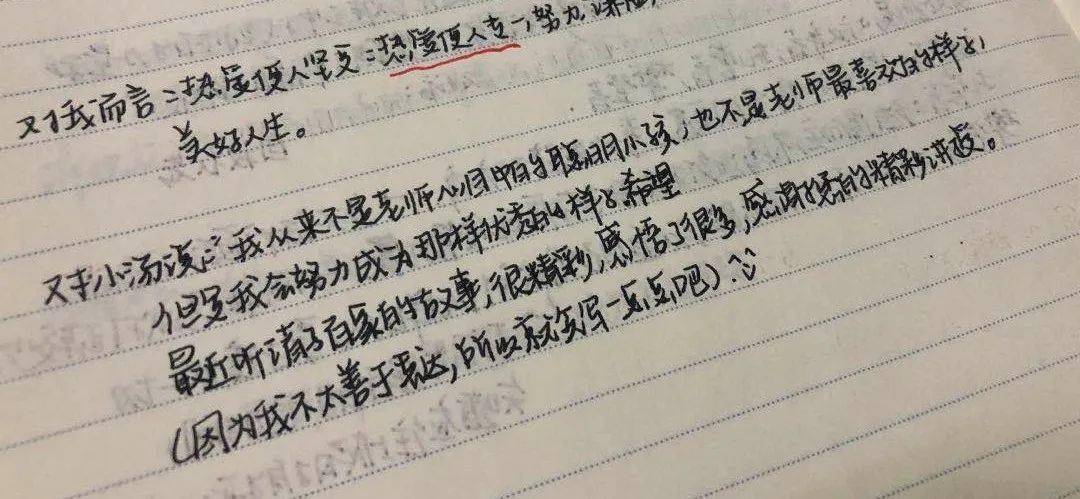 对我而言:热爱使人坚定:热爱使人幸,努力
美好人生。
对小汤说:“我从来不是老师心目中的聪明小孩,也不是老师最喜欢的样子,
但是我会努力成为那样优秀的样子,希望
最近听了百家的故事,很精彩,感悟了很多,感谢的精彩讲授。
(因为我不太善于表达,所以就就写一点点吧)